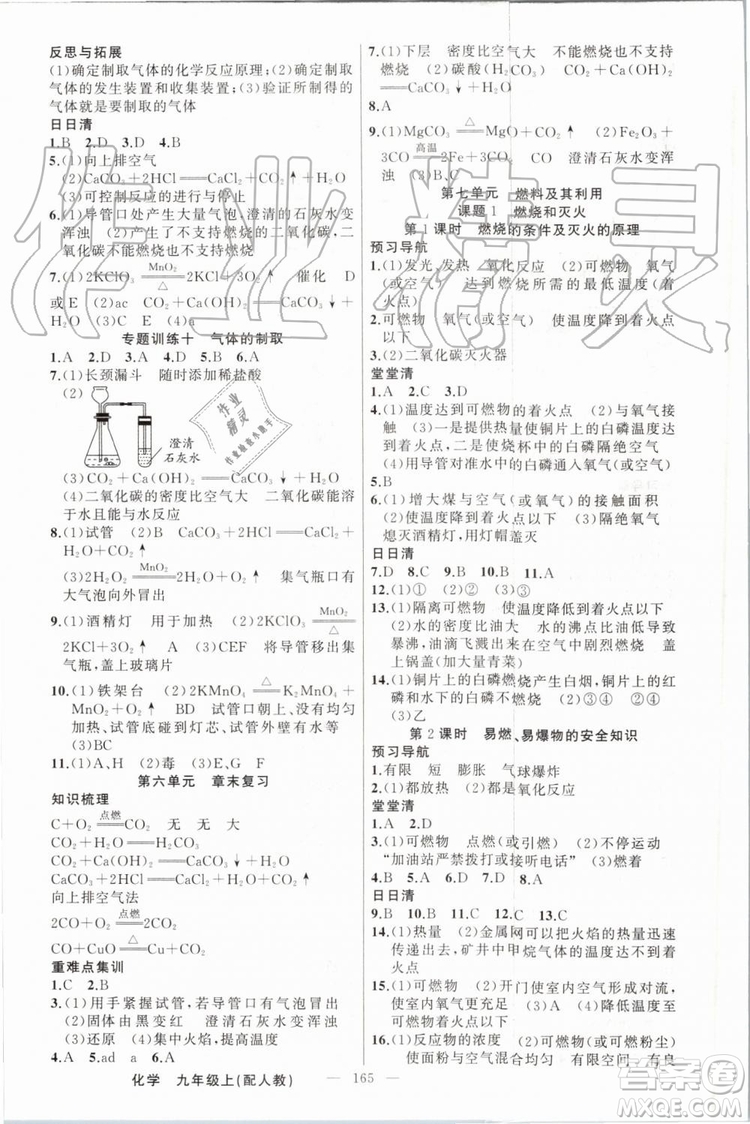 反思与拓展
(1)确定制取气体的化学反应原理;(2)确定制取
气体的发生装置和收集装置;(3)验证所制得的
气体就是要制取的气体
日日清
1.B 2.D 3.D 4.B
5.(1)向上排空气
(2)CaCO₃+2HCl══CaCl₂+H₂O+CO₂↑
(3)可控制反应的进行与停止
6.(1)导管口处产生大量气泡,澄清的石灰水变
浑浊 (2)产生了不能支持燃烧的二氧化碳,二
氧化碳不能燃烧也不支持燃烧
7.(1)2KClO₃ MnO₂══△ 2KCl+3O₂↑ 催化 D
或E (2)ac CaCO₃+2HCl══CaCl₂+H₂O+
CO₂↑ (3)b (4)a
专题训练十 气体的制取
1.A 2.D 3.A 4.D 5.D 6.A
7.(1)长颈漏斗 随时添加稀盐酸
(2)
澄清
石灰水
(3)CaCO₃+2HCl══CaCl₂+H₂O+CO₂↑
(4)二氧化碳的密度比空气大 二氧化碳能溶
于水且能与水反应
8.(1)试管 (2)B CaCO₃+2HCl══CaCl₂+
H₂O+CO₂↑
(3)2H₂O₂ MnO₂══ 2H₂O+O₂↑ 集气瓶口有
大气泡向外冒出
9.(1)酒精灯 用于加热 (2)2KClO₃ MnO₂══△
2KCl+3O₂↑ (3)CEF 将导管移出集
气瓶,盖上玻璃片
10.(1)铁架台 (2)2KMnO₄ △══ K₂MnO₄+
MnO₂+O₂↑ BD 试管口朝上、没有均匀
加热、试管底碰到灯芯、试管外壁有水等
(3)BC
11.(1)A、H (2)毒 (3)E、G、F
第六单元 章末复习
知识梳理
C+O₂ 点燃══ CO₂ 无 无 大
CO₂+H₂O══H₂CO₃
CO₂+Ca(OH)₂══CaCO₃↓+H₂O
CaCO₃+2HCl══CaCl₂+H₂O+CO₂↑
向上排空气法
2CO+O₂ 点燃══ 2CO₂
CO+CuO △══ Cu+CO₂
重难点集训
1.C 2.B
3.(1)用手紧握试管,若导管口有气泡冒出
(2)固体由黑变红 澄清石灰水变浑浊
(3)集中火焰,提高温度
4.A 5.ad a 6.A
7.(1)下层 密度比空气大 不能燃烧也不支持
燃烧 (2)碳酸(H₂CO₃) (3)CO₂+Ca(OH)₂══
CaCO₃↓+H₂O
8.A
9.(1)MgCO₃ △══ MgO+CO₂↑ (2)Fe₂O₃+
3CO 高温══ 2Fe+3CO₂ 澄清石灰水变浑
浊 (3)16.8
第七单元 燃料及其利用
课题1 燃烧和灭火
第1课时 燃烧的条件及灭火的原理
预习导航
1.(1)发光、发热 氧化反应 (2)可燃物 氧气
(或空气) 达到燃烧所需的最低温度(或着
火点)
2.可燃物 氧气(或空气) 使温度降到着火点
以下
3.(2)二氧化碳灭火器
堂堂清
1.A 2.C 3.C
4.(1)温度达到可燃物的着火点 (2)与氧气接
触 (3)一是提供热量使铜片上的白磷温度达
到着火点,二是使烧杯中的白磷隔绝空气
(4)用导管对准水中的白磷通入氧气(或空气)
5.B
6.(1)增大煤与空气(或氧气)的接触面积
(2)使温度降到着火点以下 (3)隔绝氧气
熄灭酒精灯,用灯帽盖灭
日日清
7.D 8.C 9.C 10.B 11.A
12.(1)① (2)② (3)③
13.(1)隔离可燃物 使温度降低到着火点以下
(2)水的密度比油大 水的沸点比油低导致
暴沸,油滴飞溅出来在空气中剧烈燃烧 盖
上锅盖(加大量青菜)
14.(1)铜片上的白磷燃烧产生白烟,铜片上的红
磷和水下的白磷不燃烧 (2)①③④ ②④
(3)乙
第2课时 易燃、易爆物的安全知识
预习导航
1.有限 短 膨胀 气球爆炸
2.(1)都放热 (2)都是氧化反应
堂堂清
1.A 2.D
3.(1)可燃物 点燃(或引燃) (2)不停运动
“加油站严禁拨打或接听电话” (3)燃着
4.B 5.B 6.D 7.B 8.A
日日清
9.B 10.B 11.C 12.C 13.C
14.(1)热量 (2)金属网可以把火焰的热量迅速
传递出去,矿井中甲烷气体的温度达不到着
火点
15.(1)可燃物 (2)开门使室内空气形成对流,使
室内火更充足 (3)D (4)A (5)A
16.(1)反应物的浓度 (2)可燃物 可燃粉尘
使面粉与空气混合均匀 有限空间 有良
化学 九年级上(配人教) — 165 —
作业精灵
作业精灵
作业做教本助手
答案圈
MXQE.COM